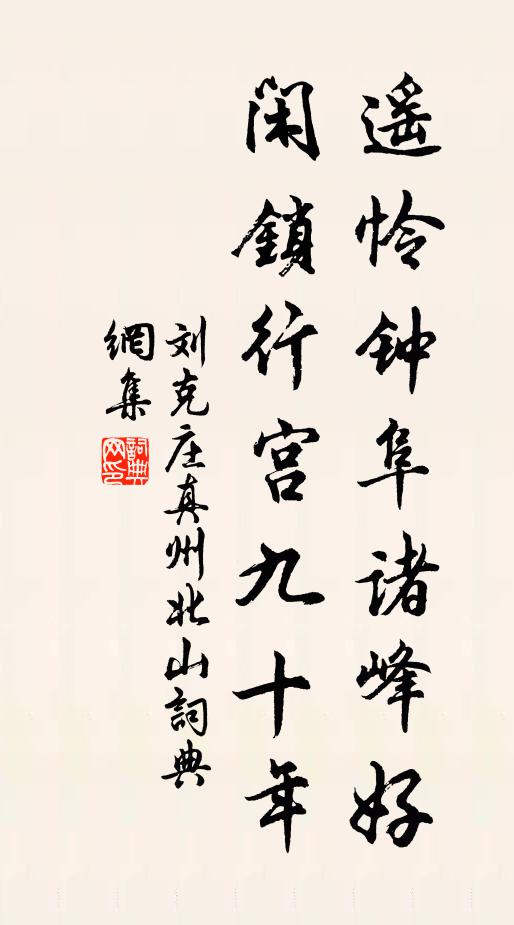 遥怜钟阜诸峰好
闲鎖行宫九十年
刘克庄真州北山詞典
網集
詞典网印